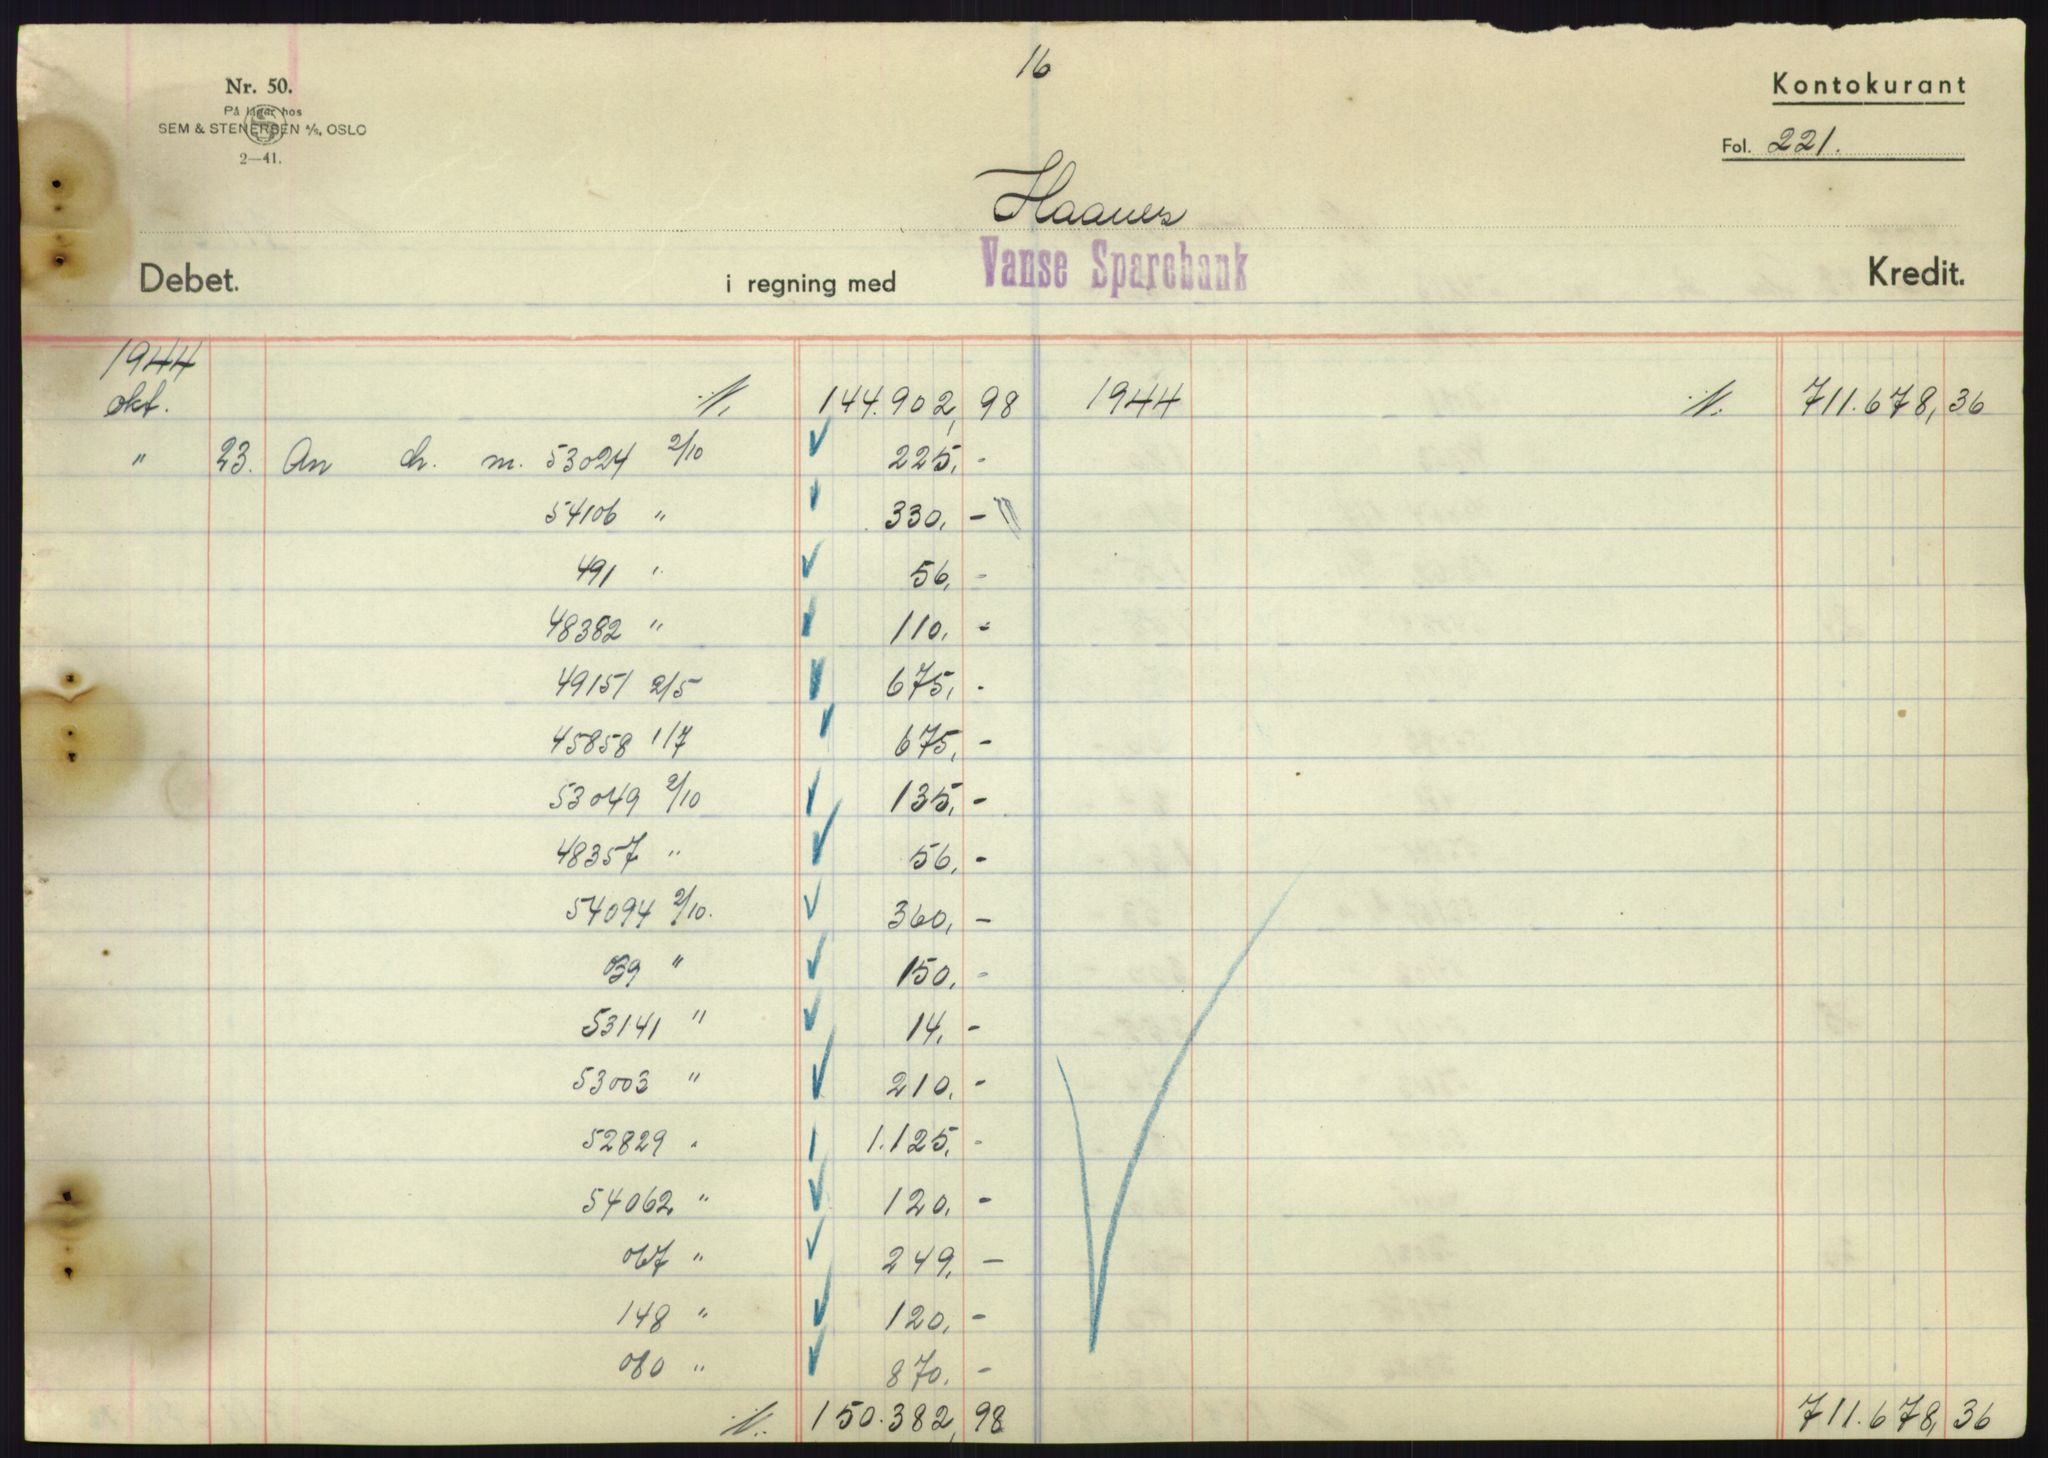 16
Nr. 50.
På lager hos
SEM & STENERSEN A/S, OSLO
2—41.
Kontokurant
Fol. 221.
Haanes
Debet. i regning med Vanse Sparebank Kredit.
1944
okt. 144.902,98 1944 711.678,36
" 23. An ch. m. 53024 2/10 225,-
54106 " 330,-
491 " 56,-
48382 " 110,-
49151 2/5 675,-
45858 1/7 675,-
53049 2/10 135,-
48357 " 56,-
54094 2/10. 360,-
039 " 150,-
53141 " 14,-
53003 " 210,-
52829 " 1.125,-
54062 " 120,-
067 " 249,-
148 " 120,-
080 " 870,-
150.382,98 711.678,36